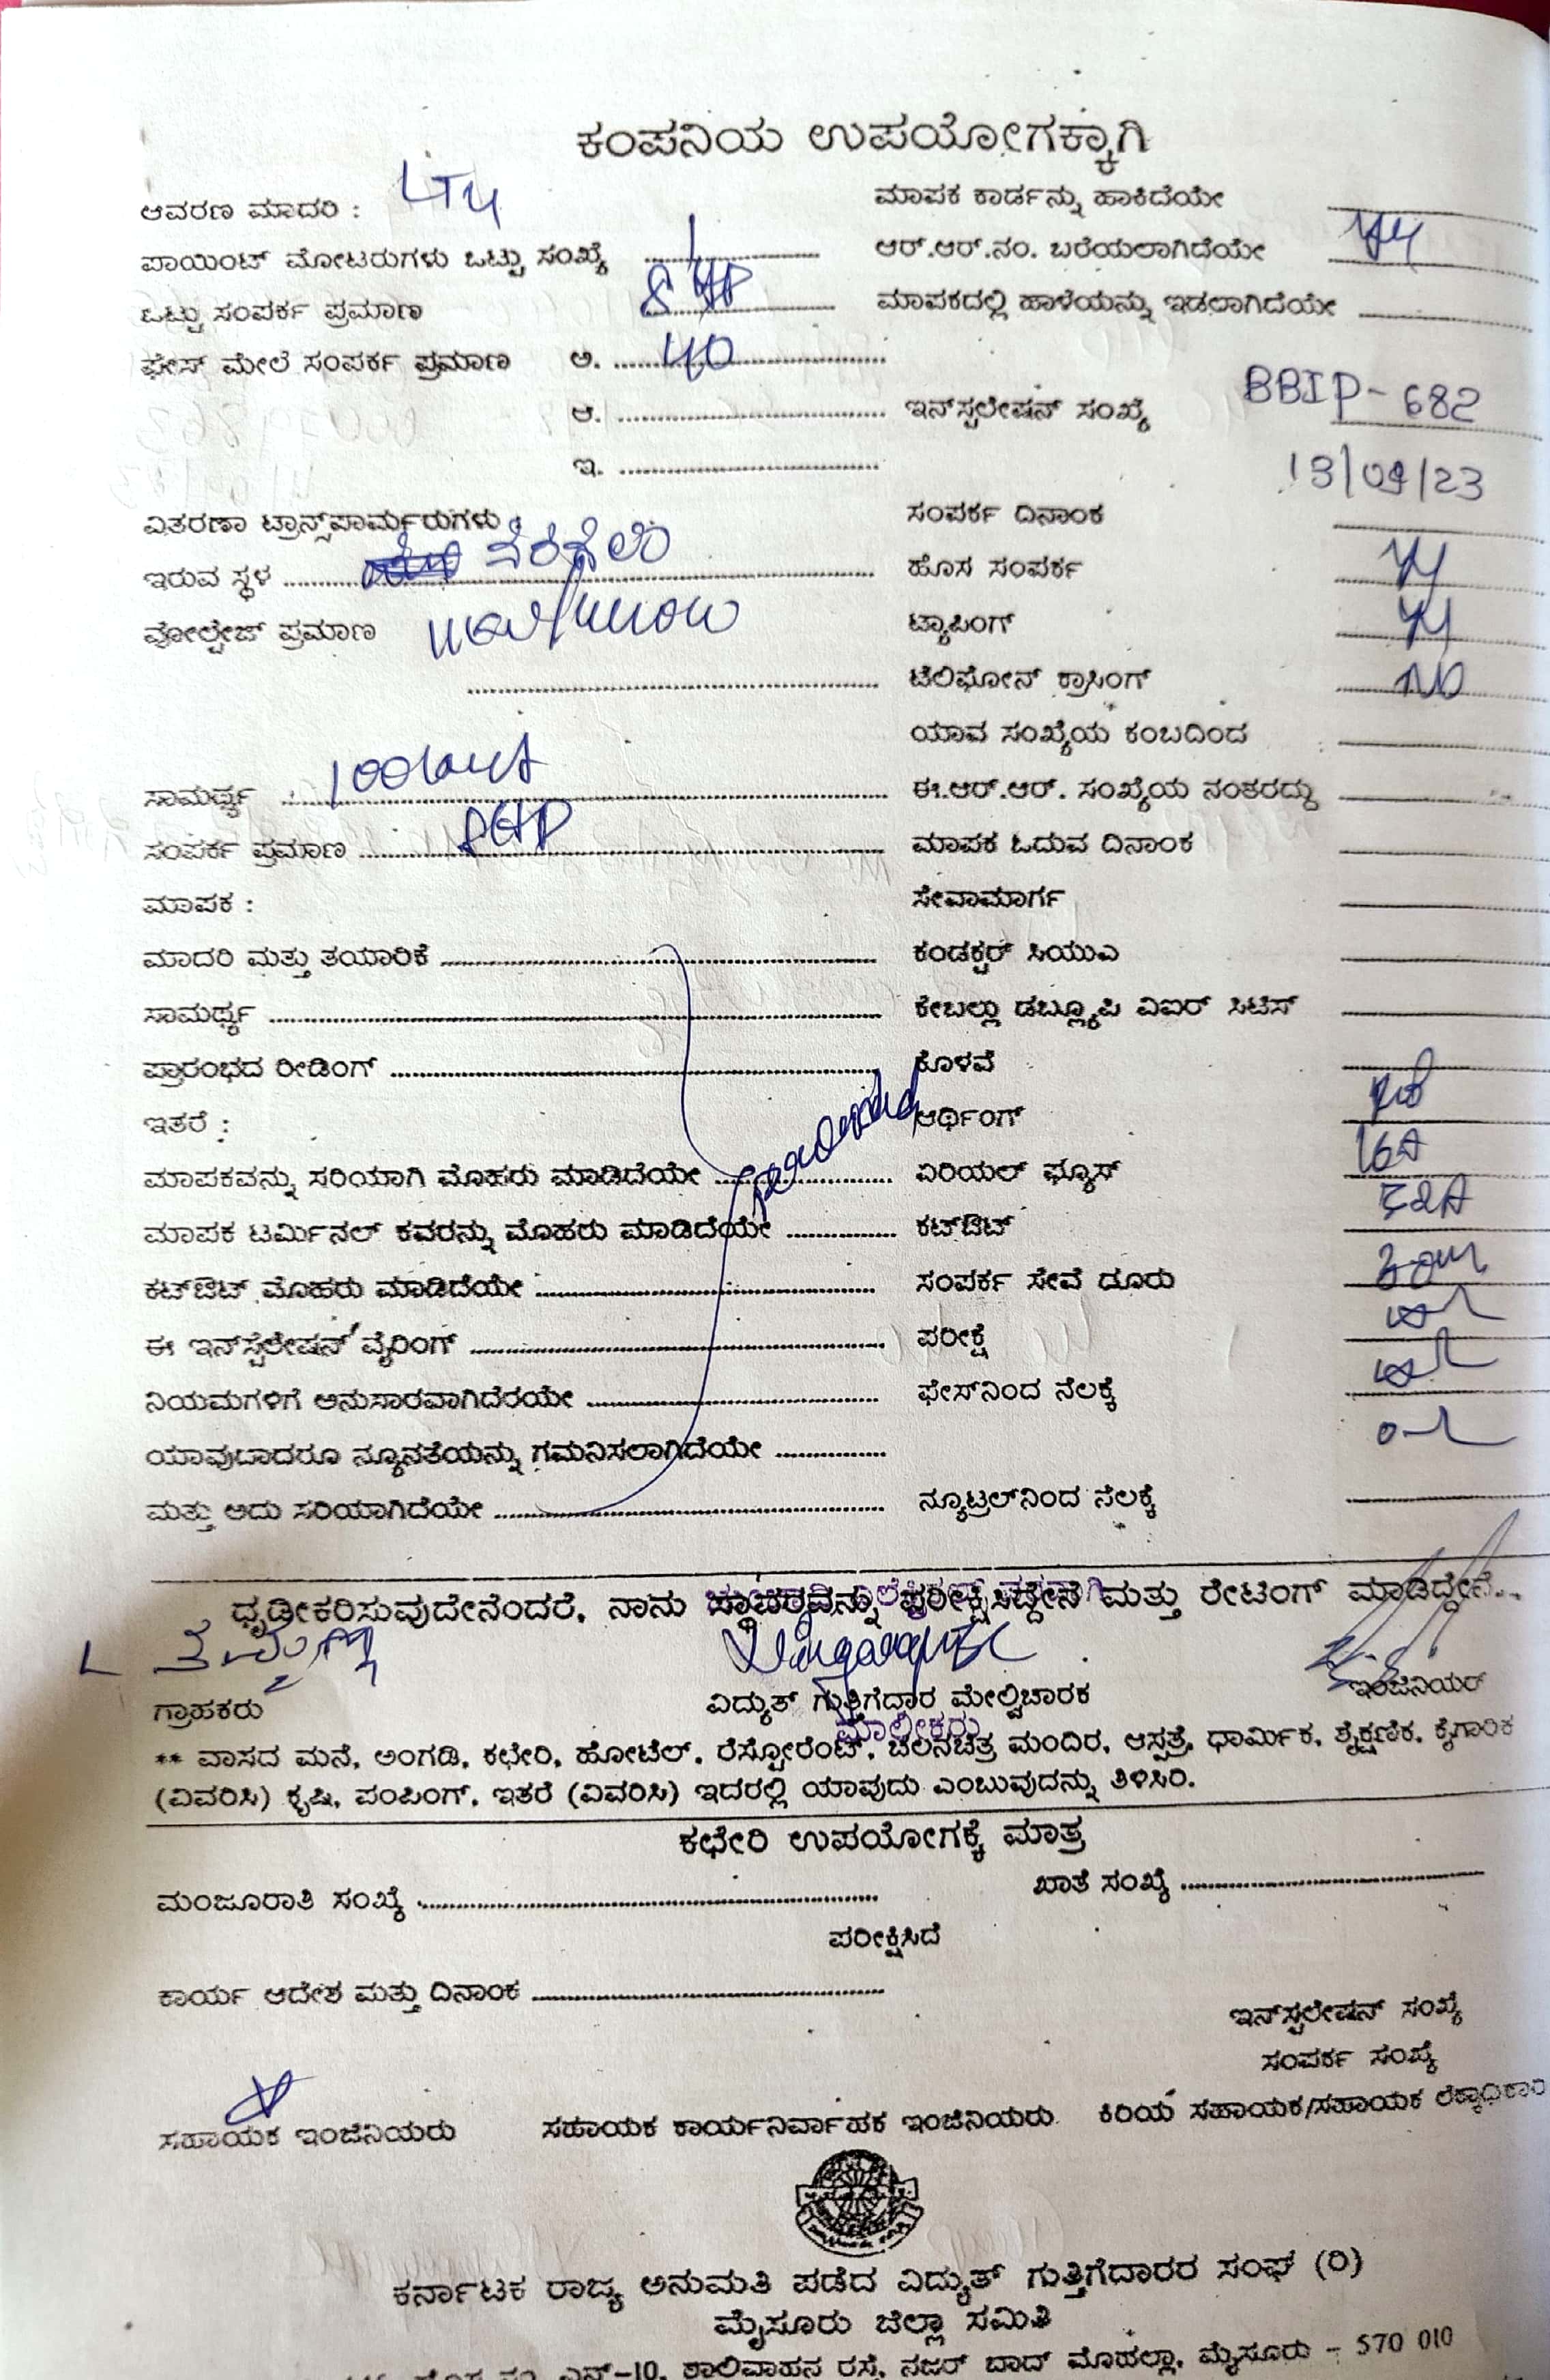 ಕಂಪನಿಯ ಉಪಯೋಗಕ್ಕಾಗಿ
ಆವರಣ ಮಾದರಿ : LT4 ಮಾಪಕ ಕಾರ್ಡನ್ನು ಹಾಕಿದೆಯೇ
ಪಾಯಿಂಟ್ ಮೋಟರುಗಳು ಒಟ್ಟು ಸಂಖ್ಯೆ 1 ಆರ್.ಆರ್.ನಂ. ಬರೆಯಲಾಗಿದೆಯೇ
ಒಟ್ಟು ಸಂಪರ್ಕ ಪ್ರಮಾಣ 8 HP ಮಾಪಕದಲ್ಲಿ ಹಾಳೆಯನ್ನು ಇಡಲಾಗಿದೆಯೇ
ಫೇಸ್ ಮೇಲೆ ಸಂಪರ್ಕ ಪ್ರಮಾಣ ಅ. 40
ಆ. ಇನ್‌ಸ್ಟಲೇಷನ್ ಸಂಖ್ಯೆ BBIP-682
ಇ.
13/09/23
ವಿತರಣಾ ಟ್ರಾನ್ಸ್‌ಪಾರ್ಮರುಗಳು ಸಂಪರ್ಕ ದಿನಾಂಕ
ಇರುವ ಸ್ಥಳ ಹೊಸ ಸಂಪರ್ಕ
ವೋಲ್ಟೇಜ್ ಪ್ರಮಾಣ ಟ್ಯಾಪಿಂಗ್
ಟೆಲಿಫೋನ್ ಕ್ರಾಸಿಂಗ್ NO
ಯಾವ ಸಂಖ್ಯೆಯ ಕಂಬದಿಂದ
ಸಾಮರ್ಥ್ಯ ಈ.ಆರ್.ಆರ್. ಸಂಖ್ಯೆಯ ನಂತರದ್ದು
ಸಂಪರ್ಕ ಪ್ರಮಾಣ 8HP ಮಾಪಕ ಓದುವ ದಿನಾಂಕ
ಮಾಪಕ : ಸೇವಾಮಾರ್ಗ
ಮಾದರಿ ಮತ್ತು ತಯಾರಿಕೆ ಕಂಡಕ್ಟರ್ ಸಿಯುಎ
ಸಾಮರ್ಥ್ಯ ಕೇಬಲ್ಲು ಡಬ್ಲ್ಯೂಪಿ ವಿಐರ್ ಸಿಟಿಸ್
ಪ್ರಾರಂಭದ ರೀಡಿಂಗ್ ಕೊಳವೆ
ಇತರೆ : ಆರ್ಥಿಂಗ್
ಮಾಪಕವನ್ನು ಸರಿಯಾಗಿ ಮೊಹರು ಮಾಡಿದೆಯೇ ಏರಿಯಲ್ ಫ್ಯೂಸ್ 16A
ಮಾಪಕ ಟರ್ಮಿನಲ್ ಕವರನ್ನು ಮೊಹರು ಮಾಡಿದೆಯೇ ಕಟ್‌ಔಟ್
ಕಟ್‌ಔಟ್ ಮೊಹರು ಮಾಡಿದೆಯೇ ಸಂಪರ್ಕ ಸೇವೆ ದೂರು
ಈ ಇನ್‌ಸ್ಟಲೇಷನ್ ವೈರಿಂಗ್ ಪರೀಕ್ಷೆ
ನಿಯಮಗಳಿಗೆ ಅನುಸಾರವಾಗಿದೆರಯೇ ಫೇಸ್‌ನಿಂದ ನೆಲಕ್ಕೆ
ಯಾವುದಾದರೂ ನ್ಯೂನತೆಯನ್ನು ಗಮನಿಸಲಾಗಿದೆಯೇ
ಮತ್ತು ಅದು ಸರಿಯಾಗಿದೆಯೇ ನ್ಯೂಟ್ರಲ್‌ನಿಂದ ನೆಲಕ್ಕೆ
ಧೃಡೀಕರಿಸುವುದೇನೆಂದರೆ, ನಾನು ಸ್ಥಾವರವನ್ನು ಪರೀಕ್ಷಿಸಿದ್ದೇನೆ ಮತ್ತು ರೇಟಿಂಗ್ ಮಾಡಿದ್ದೇನೆ..
ಗ್ರಾಹಕರು ವಿದ್ಯುತ್ ಗುತ್ತಿಗೆದಾರ ಮೇಲ್ವಿಚಾರಕ ಇಂಜಿನಿಯರ್
ಮಾಲೀಕರು
** ವಾಸದ ಮನೆ, ಅಂಗಡಿ, ಕಛೇರಿ, ಹೋಟೆಲ್, ರೆಸ್ಟೋರೆಂಟ್, ಚಲನಚಿತ್ರ ಮಂದಿರ, ಆಸ್ಪತ್ರೆ, ಧಾರ್ಮಿಕ, ಶೈಕ್ಷಣಿಕ, ಕೈಗಾರಿಕ
(ವಿವರಿಸಿ) ಕೃಷಿ, ಪಂಪಿಂಗ್, ಇತರೆ (ವಿವರಿಸಿ) ಇದರಲ್ಲಿ ಯಾವುದು ಎಂಬುವುದನ್ನು ತಿಳಿಸಿರಿ.
ಕಛೇರಿ ಉಪಯೋಗಕ್ಕೆ ಮಾತ್ರ
ಮಂಜೂರಾತಿ ಸಂಖ್ಯೆ ಖಾತೆ ಸಂಖ್ಯೆ
ಪರೀಕ್ಷಿಸಿದೆ
ಕಾರ್ಯ ಆದೇಶ ಮತ್ತು ದಿನಾಂಕ
ಇನ್‌ಸ್ಟಲೇಷನ್ ಸಂಖ್ಯೆ
ಸಂಪರ್ಕ ಸಂಖ್ಯೆ
ಸಹಾಯಕ ಇಂಜಿನಿಯರು ಸಹಾಯಕ ಕಾರ್ಯನಿರ್ವಾಹಕ ಇಂಜಿನಿಯರು ಕಿರಿಯ ಸಹಾಯಕ/ಸಹಾಯಕ ಲೆಕ್ಕಾಧಿಕಾರಿ
ಕರ್ನಾಟಕ ರಾಜ್ಯ ಅನುಮತಿ ಪಡೆದ ವಿದ್ಯುತ್ ಗುತ್ತಿಗೆದಾರರ ಸಂಘ (ರಿ)
ಮೈಸೂರು ಜಿಲ್ಲಾ ಸಮಿತಿ
ಎನ್-10, ಶಾಲಿವಾಹನ ರಸ್ತೆ, ನಜರ್ ಬಾದ್ ಮೊಹಲ್ಲಾ, ಮೈಸೂರು - 570 010